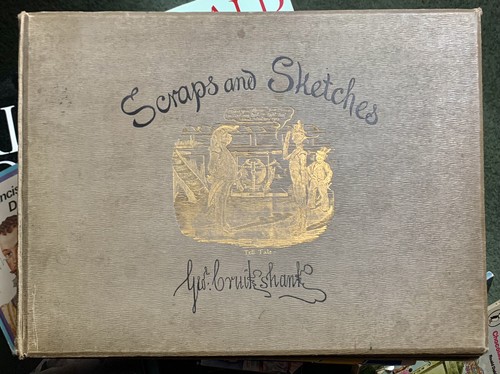 ALD
Scraps and Sketches
Tell Tale.
Geo. Cruikshank